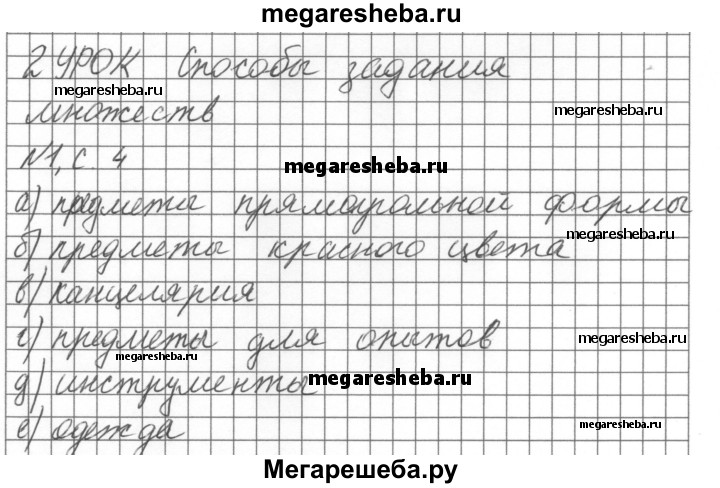 megaresheba.ru
2 УРОК Способы задания
megaresheba.ru
множеств
megaresheba.ru
№1, с. 4
megaresheba.ru
а) предметы прямоугольной формы
megaresheba.ru
б) предметы красного цвета
в) канцелярия
г) предметы для опытов
megaresheba.ru
megaresheba.ru
д) инструменты
megaresheba.ru
е) одежда
megaresheba.ru
Мегарешеба.ру